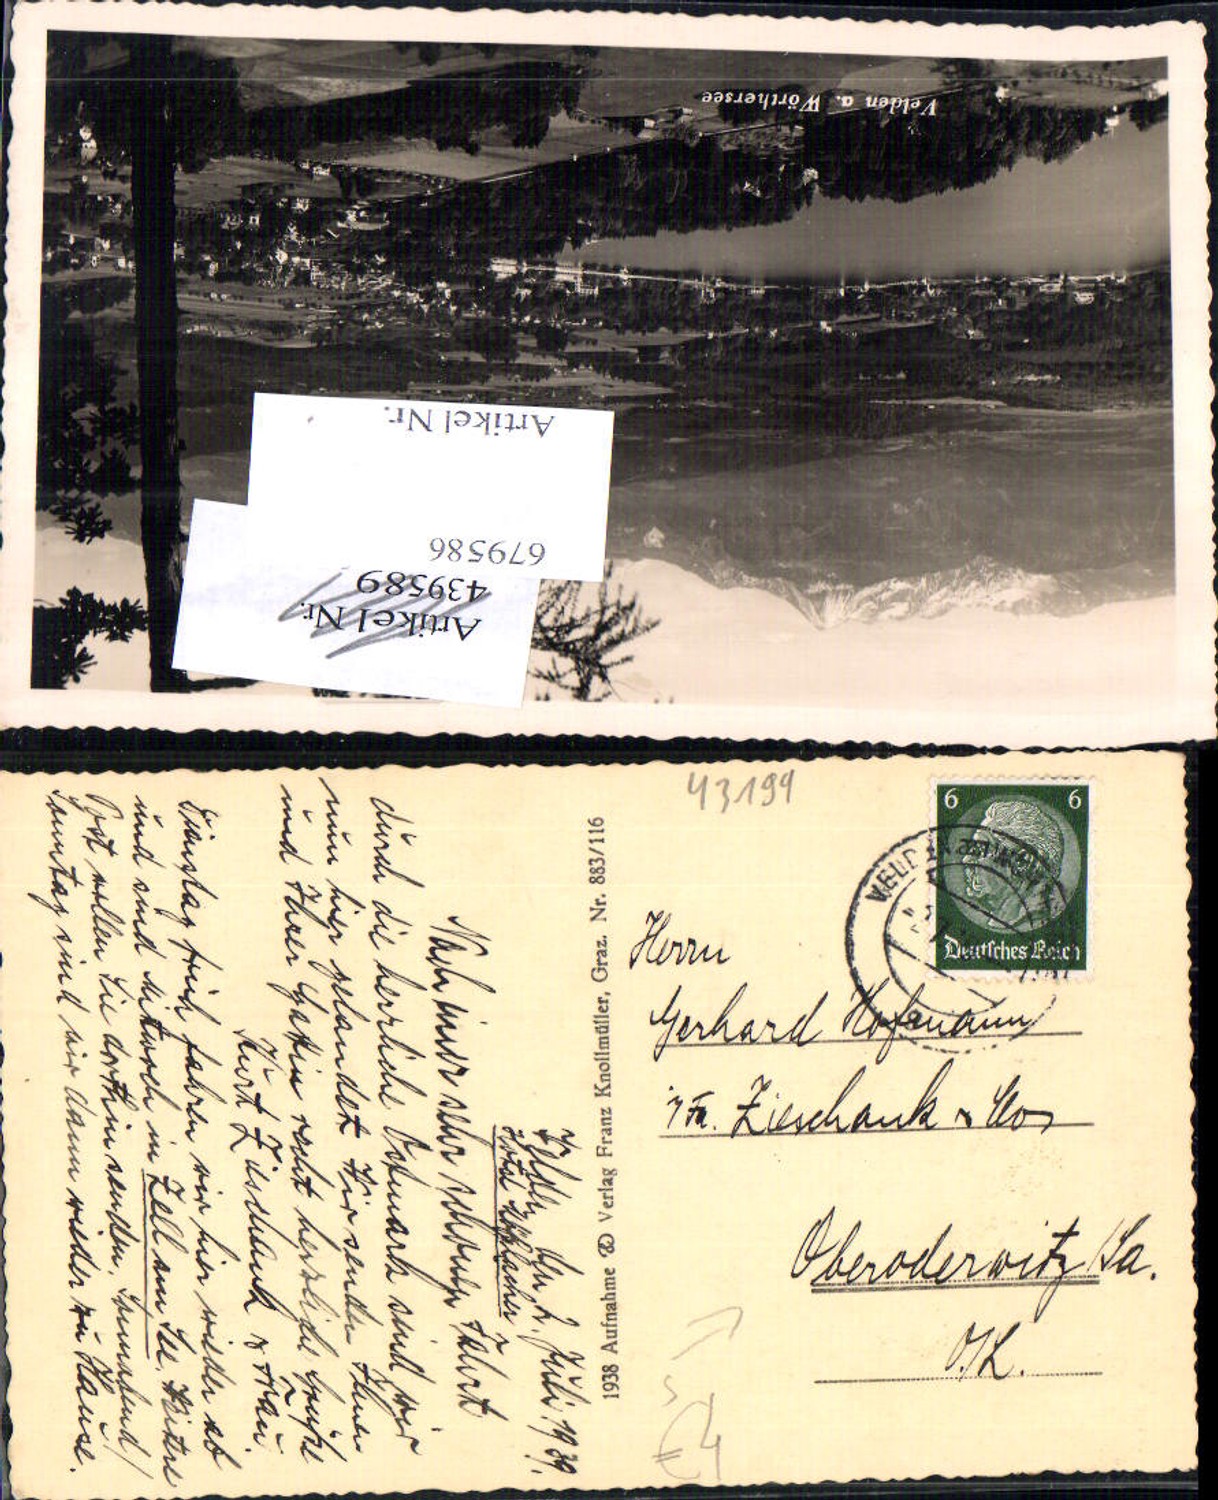 Velden a. Wörthersee
Artikel Nr.
679586
Artikel Nr.
439589
43199
6 6
Deutsches Reich
Herrn
Gerhard Hofmann
i/Fa. Zieschank & Co
Oberoderwitz/Sa.
O/L.
€4
1938 Aufnahme u. Verlag Franz Knollmüller, Graz. Nr. 883/116
Velden, den 2. Juli 1939.
Hotel
Nach einer sehr schönen Fahrt
durch die herrliche Ostmark sind wir
nun hier gelandet. Wir senden Ihnen
und Ihrer Gattin recht herzliche Grüße
Kurt Zieschank & Frau.
Dienstag früh fahren wir hier wieder ab
und sind Mittwoch in Zell am See. Bitte
Post wollen Sie dorthin senden. Sonnabend/
Sonntag sind wir dann wieder zu Hause.